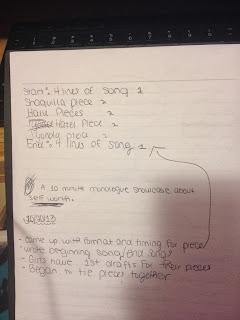 Start: 4 lines of song 2
Shaquilla piece 2
Hair Pieces 2
Hotel Piece 2
piece 2
End: 4 lines of song 2
A 10 minute monologue showcase about
self worth.
- Come up with format and timing for piece
- write beginning song/end song
- Girls have 1st drafts for their pieces
- Began to tie pieces together